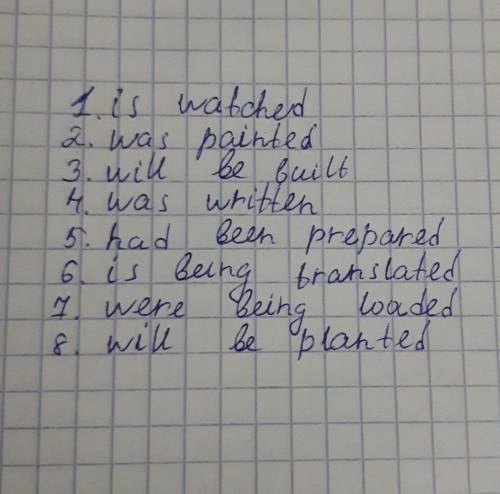 1. is watched
2. was painted
3. will be built
4. was written
5. had been prepared
6. is being translated
7. were being loaded
8. will be planted